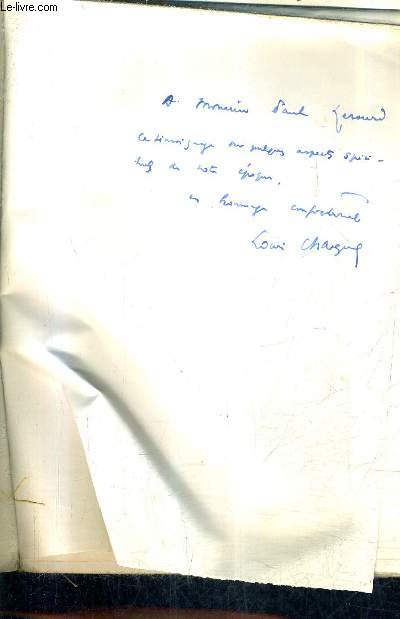 Le-livre.com
A Monsieur Paul
ce témoignage sur quelques aspects spiri-
tuels de notre époque,
en hommage confraternel
Louis Chaigne